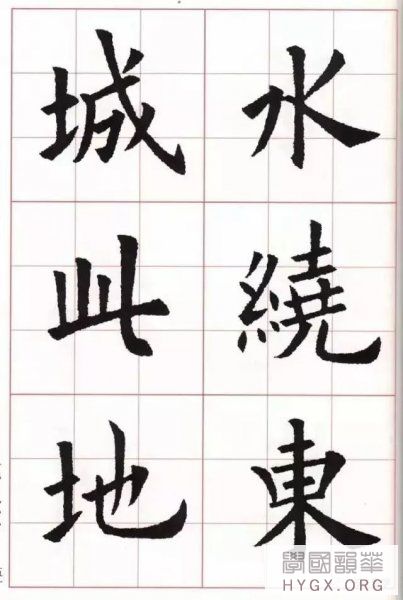 水繞東
城此地
學國韻華
HYGX.ORG